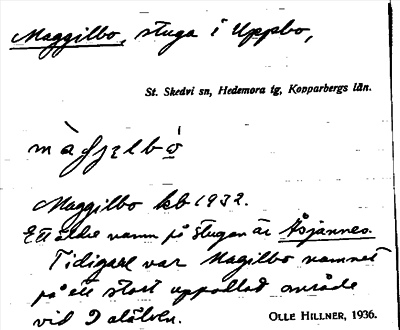 Maggilbo, stuga i Uppbo,
St. Skedvi sn, Hedemora tg, Kopparbergs län.
Maggilbo kb 1932.
Ett äldre namn på stugan är Åsjannes.
Tidigare var Magilbo namnet
på ett stort uppodlad område
vid Dalälven.
OLLE HILLNER, 1936.